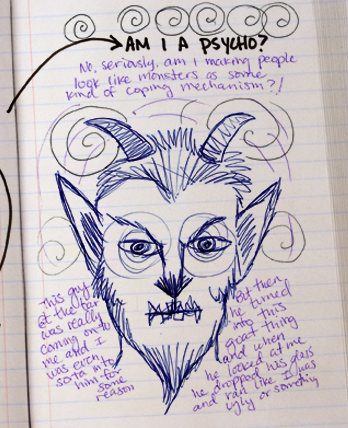 AM I A PSYCHO?
No, seriously, am I making people
look like monsters as some
kind of coping mechanism?!
This guy
@ the bar
was really
coming onto
me and I
was even
sorta into
him for
some
reason
But then
he turned
into this
goat thing
and when
he looked at me
he dropped his glass
and ran like I was
ugly or something